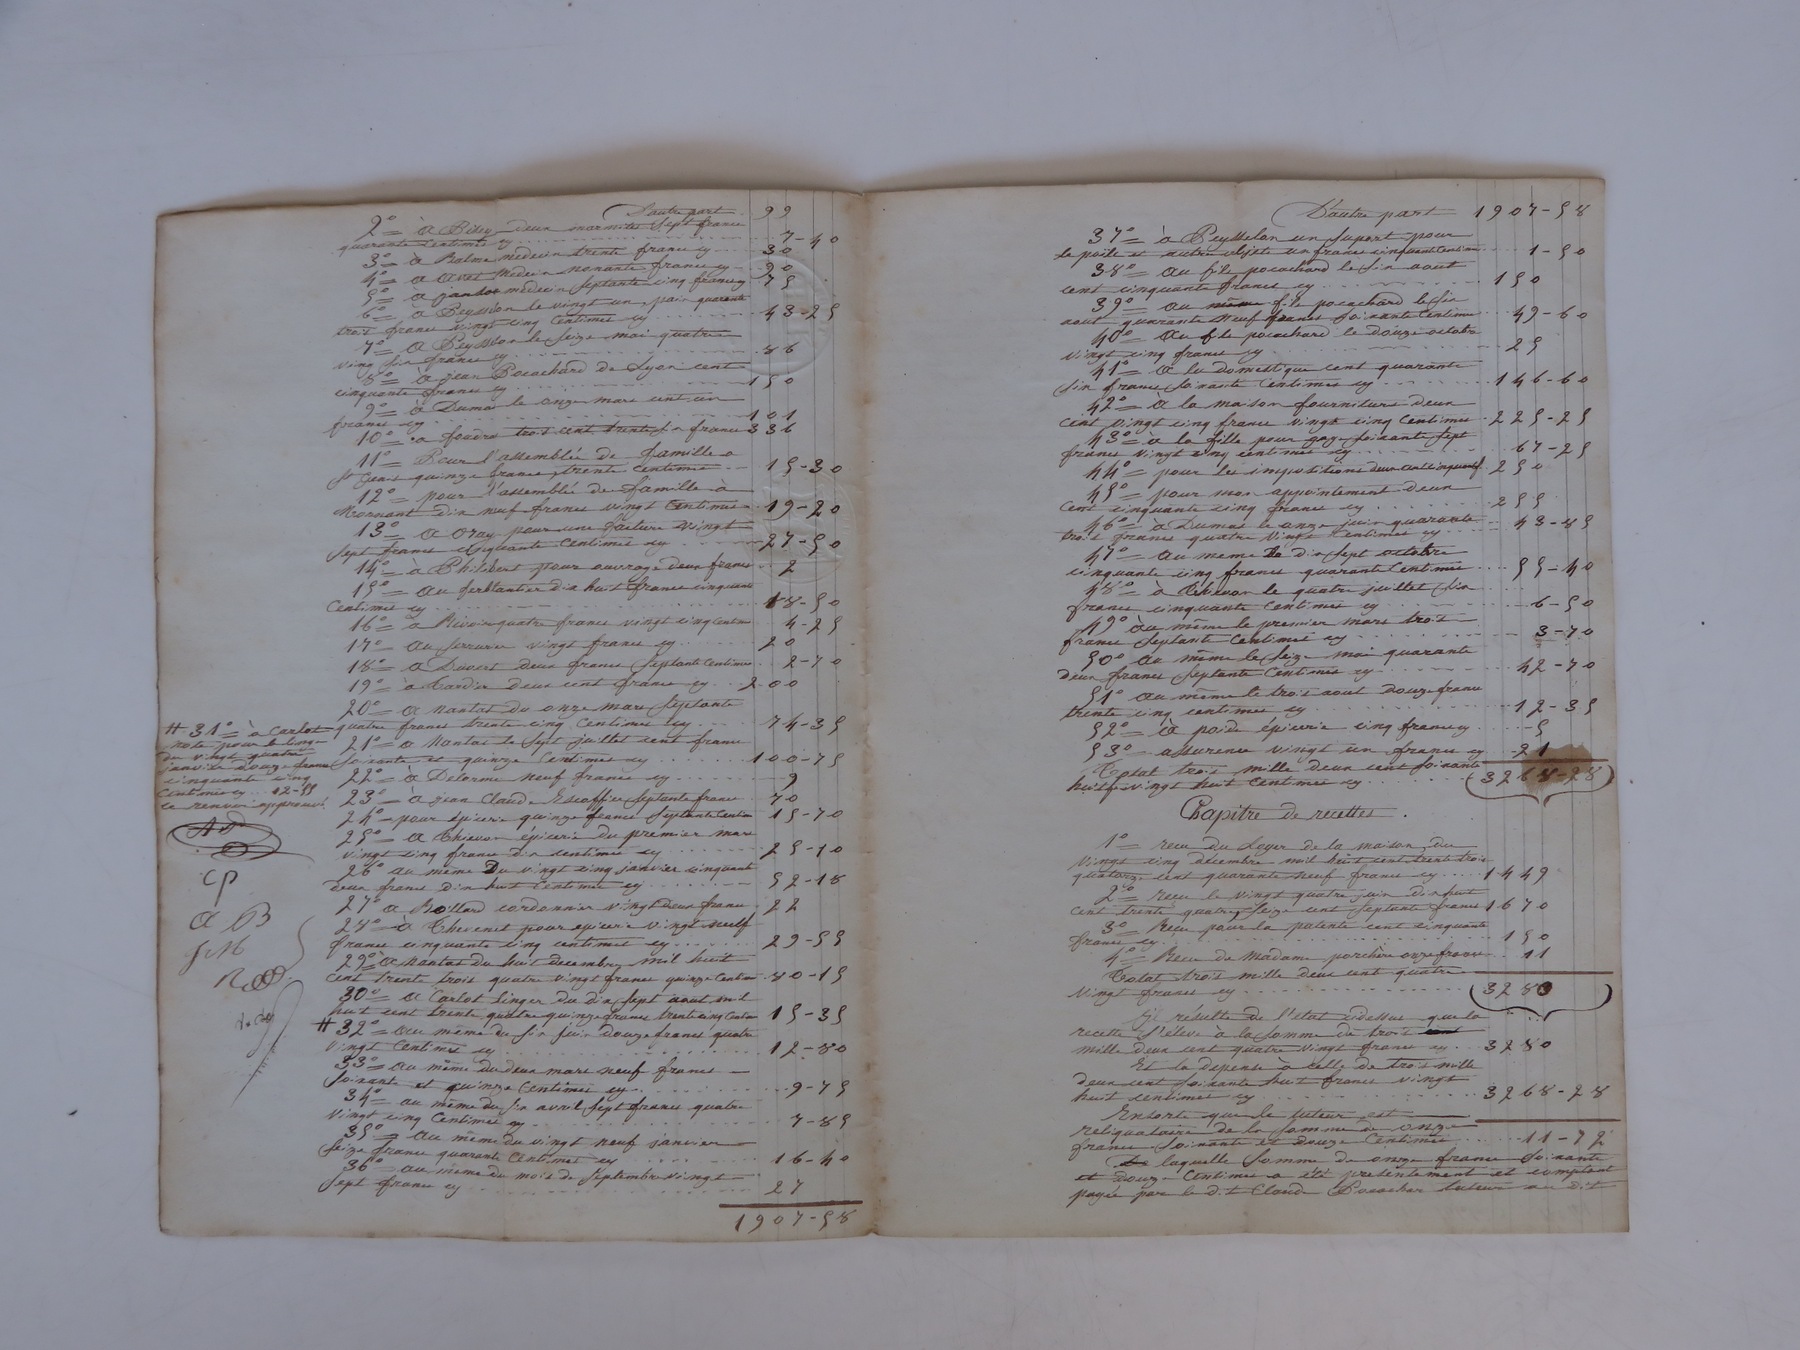 D'autre part . 99
2° = à Bidey deux inormites sept francs
quarante centimes cy 7-40
3° = à Balme médecin trente francs cy 30
4° = a médecin nonante francs cy 90
5° = a jambot médecin septante cinq francs cy 75
6° = a Peyssion le vingt un pair quarante
trois francs vingt cinq centimes cy 43-25
7° = a Peyssion le seize mai quatre
vingt six francs cy 86
8° = à jean Pocachard de Lyon cent
cinquante francs cy 150
9° = à Dumas le onze mars cent un
francs cy 101
10° = a foudra trois cent trente six francs 336
11° = Pour l'assemblée de famille a
st jenis quinze francs trente centimes 15-30
12° = pour l'assemblée de famille à
Mornant dix neuf francs vingt centimes 19-20
13° = a Oray pour une facture vingt
sept francs cinquante centimes cy 27-50
14° = à Philibert pour ouvrage deux francs 2
15° = au ferblantier dix huit francs cinquante
centimes cy 18-50
16° = a Rivoir quatre francs vingt cinq centimes 4-25
17° = au serrurier vingt francs cy 20
18° = a Duvert deux francs septante centimes 2-70
19° = à Cardir deux cent francs cy 200
20° = a Nantas du onze mars septante
quatre francs trente cinq centimes cy 74-35
21° = a Nantas le sept juillet cent francs
soixante et quinze centimes cy 100-75
22° = à Delorme neuf francs cy 9
23° = à jean Claude Escoffier septante francs 70
24° = pour épicerie quinze francs septante centimes 15-70
25° = a Thievon épicerie du premier mars
vingt cinq francs dix centimes cy 25-10
26° au même Du vingt cinq janvier cinquante
deux francs dix huit centimes cy 52-18
27° a Boillard cordonnier vingt deux francs 22
28° = à Thevenet pour épicerie vingt neuf
francs cinquante cinq centimes cy 29-55
29° = a Nantas du huit décembre mil huit
cent trente trois quatre vingt francs quinze centimes 80-15
30° = a Carlot Linger du dix sept aout mil
huit cent trente quatre quinze francs trente cinq centimes 15-35
# 32° = au même du six juin douze francs quatre
vingt centimes cy 12-80
33° = au même du deux mars neuf francs
soixante et quinze centimes cy 9-75
34° = au même du six avril sept francs quatre
vingt cinq centimes cy 7-85
35° = au même du vingt neuf janvier
seize francs quarante centimes cy 16-40
36° = au même du mois de septembre vingt
sept francs cy 27
1907-58
# 31° = à Carlot
note pour le linge
du vingt quatre
janvier douze francs
cinquante cinq
centimes cy 12-55
ce renvoi approuvé
CP
A B
D'autre part 1907-58
37° = à Peysselon un suport pour
le poile et autre objets un francs cinquante centimes 1-50
38° = au fils pocachard le six aout
cent cinquante francs cy 150
39° = au même fils pocachard le six
aout quarante neuf francs soixante centimes 49-60
40° = au fils pocachard le douze octobre
vingt cinq francs cy 25
41° = a la domestique cent quarante
six francs soixante centimes cy 146-60
42° = à la maison fourniture deux
cent vingt cinq francs vingt cinq centimes 225-25
43° = à la fille pour gage soixante sept
francs vingt cinq centimes cy 67-25
44° = pour les impositions deux cent cinquante f 250
45° = pour mon appointement deux
cent cinquante cinq francs cy 255
46° = a Dumas le onze juin quarante
trois francs quatre vingt centimes cy 43-85
47° = au meme le dix sept octobre
cinquante cinq francs quarante centimes 55-40
48° = à Thievon le quatre juillet six
francs cinquante centimes cy 6-50
49° au même le premier mars trois
francs septante centimes cy 3-70
50° au même le seize mai quarante
deux francs septante centimes cy 42-70
51° au même le trois aout douze francs
trente cinq centimes cy 12-35
52° = à poids épicerie cinq francs cy 5
53° = assurence vingt un francs cy 21
Total trois mille deux cent soixante
huit f vingt huit centimes cy (3268-28)
Chapitre de recettes.
1° = recu du Loyer de la maison du
vingt cinq décembre mil huit cent trente trois
quatorze cent quarante neuf francs cy 1449
2° = recu le vingt quatre juin dix huit
cent trente quatre, seize cent septante francs 1670
3° = Recu pour la patente cent cinquante
francs cy 150
4° = Recu de Madame porchère onze francs 11
Total trois mille deux cent quatre
vingt francs cy (3280)
Il résulte de l'état cidessus que la
recette s'élève à la somme de trois cent
mille deux cent quatre vingt francs cy 3280
Et la dépense à celle de trois mille
deux cent soixante huit francs vingt
huit centimes cy 3268-28
Ensorte que le tuteur est
reliquataire de la somme de onze
francs soixante et douze centimes 11-72
laquelle somme de onze francs soixante
et douze centimes a été présentement et comptant
payée par le d.t Claude Pocachar tuteur au d.t